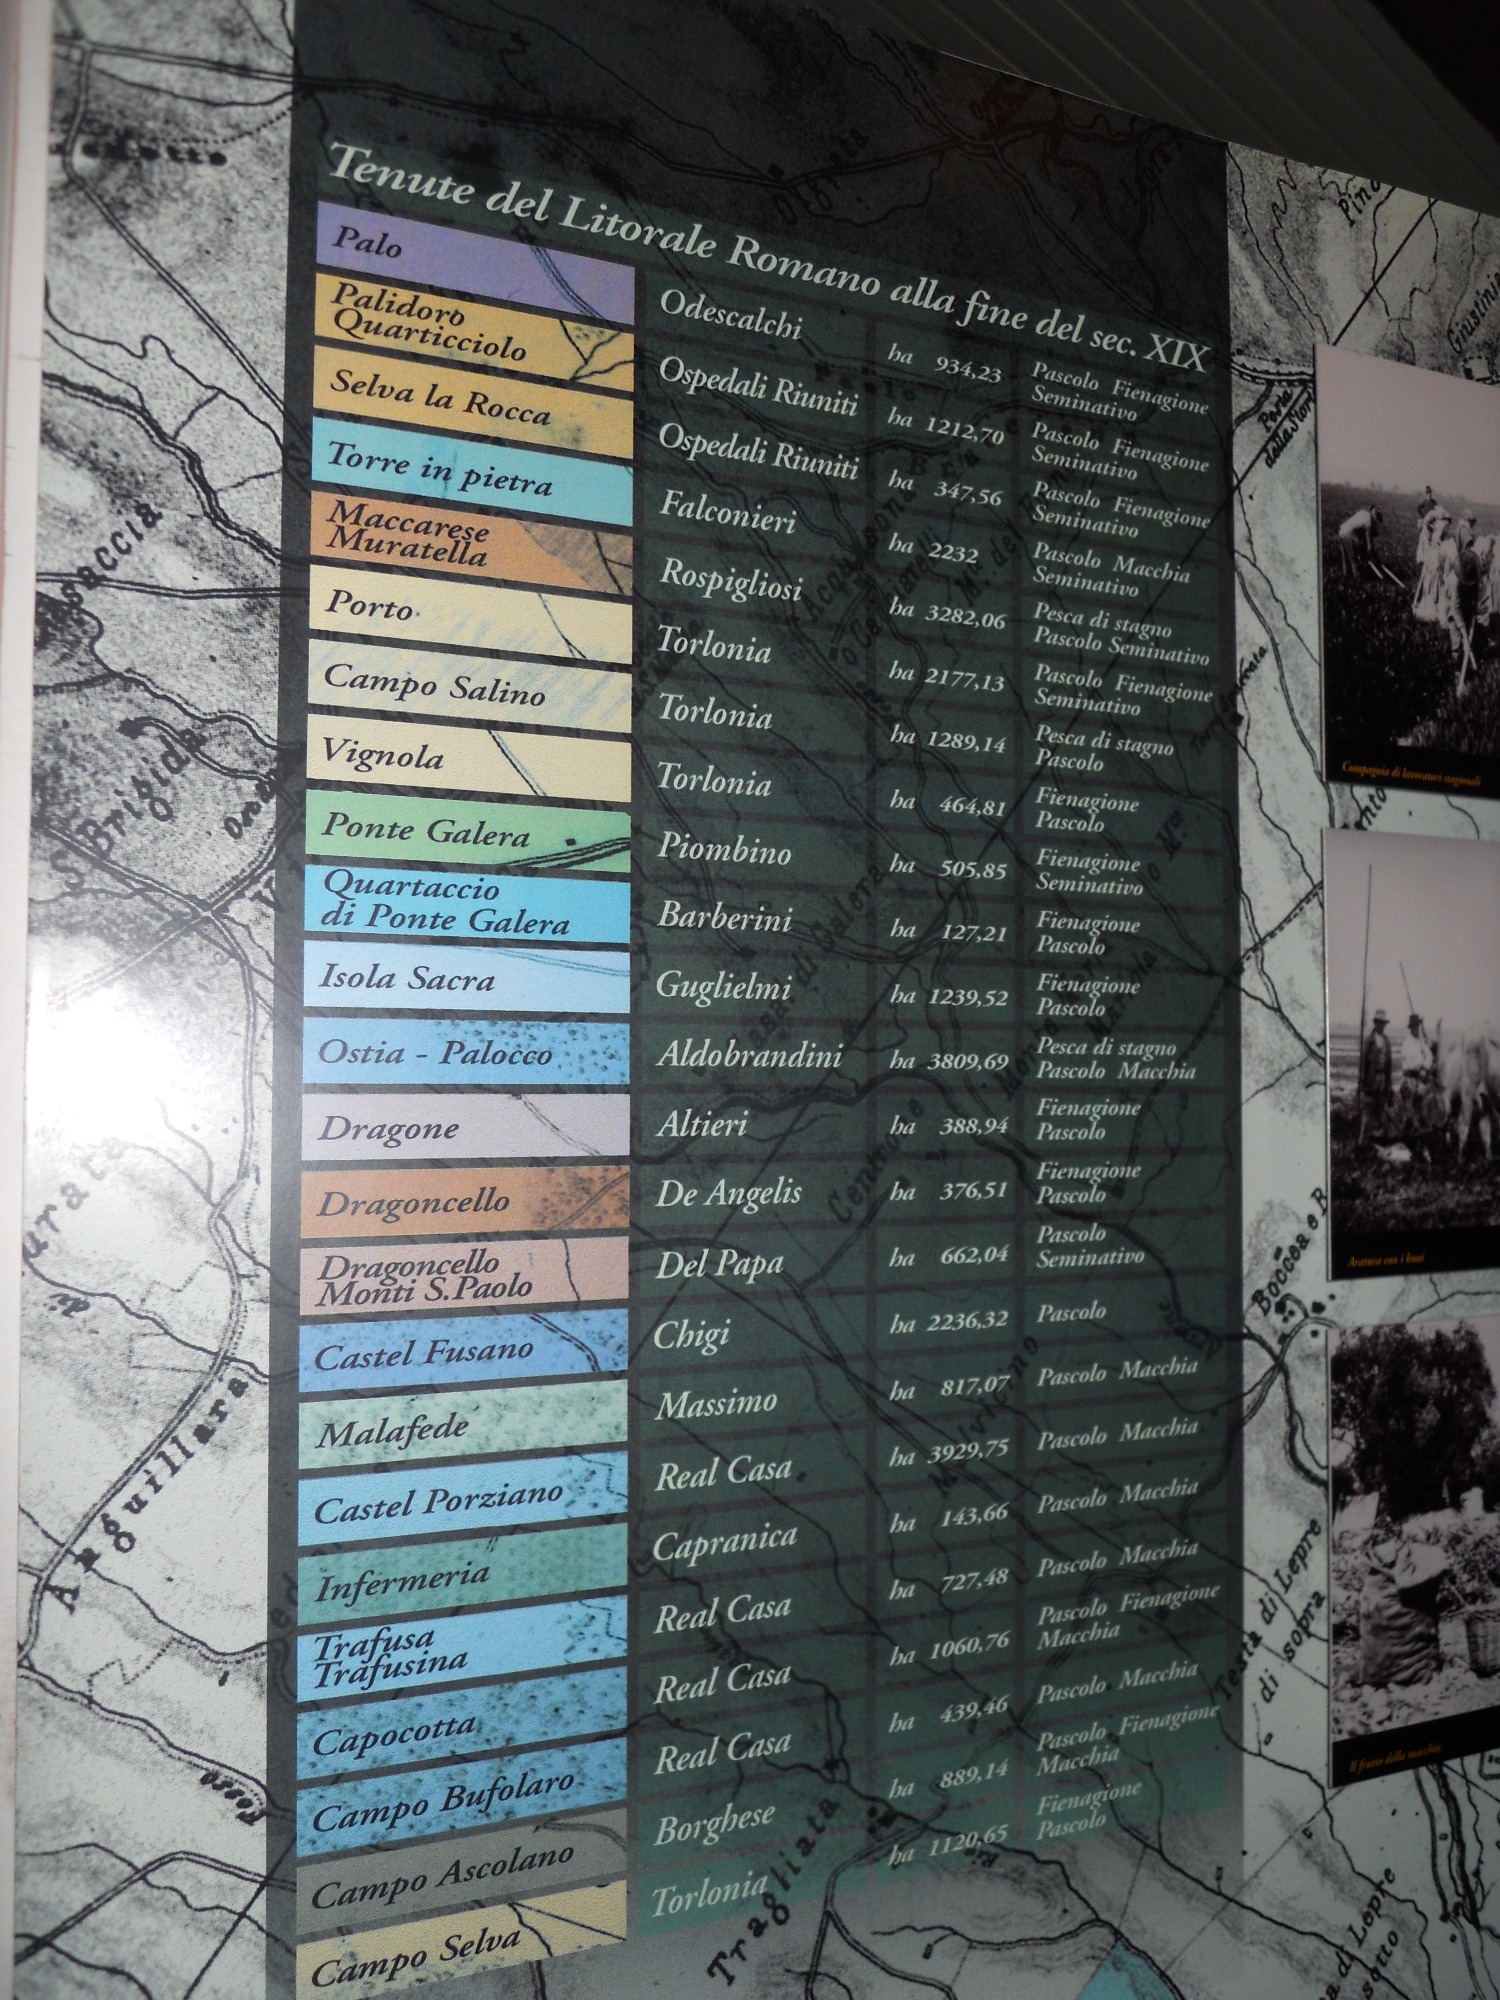 Tenute del Litorale Romano alla fine del sec. XIX
Palo
Palidoro
Quarticciolo
Selva la Rocca
Torre in pietra
Maccarese
Muratella
Porto
Campo Salino
Vignola
Ponte Galera
Quartaccio
di Ponte Galera
Isola Sacra
Ostia - Palocco
Dragone
Dragoncello
Dragoncello
Monti S.Paolo
Castel Fusano
Malafede
Castel Porziano
Infermeria
Trafusa
Trafusina
Capocotta
Campo Bufolaro
Campo Ascolano
Campo Selva
Odescalchi
Ospedali Riuniti
Ospedali Riuniti
Falconieri
Rospigliosi
Torlonia
Torlonia
Torlonia
Piombino
Barberini
Guglielmi
Aldobrandini
Altieri
De Angelis
Del Papa
Chigi
Massimo
Real Casa
Capranica
Real Casa
Real Casa
Real Casa
Borghese
Torlonia
ha 934,23
ha 1212,70
ha 347,56
ha 2232
ha 3282,06
ha 2177,13
ha 1289,14
ha 464,81
ha 505,85
ha 127,21
ha 1239,52
ha 3809,69
ha 388,94
ha 376,51
ha 662,04
ha 2236,32
ha 817,07
ha 3929,75
ha 143,66
ha 727,48
ha 1060,76
ha 439,46
ha 889,14
ha 1120,65
Pascolo Fienagione
Seminativo
Pascolo Fienagione
Seminativo
Pascolo Fienagione
Seminativo
Pascolo Macchia
Seminativo
Pesca di stagno
Pascolo Seminativo
Pascolo Fienagione
Seminativo
Pesca di stagno
Pascolo
Fienagione
Pascolo
Fienagione
Seminativo
Fienagione
Pascolo
Fienagione
Pascolo
Pesca di stagno
Pascolo Macchia
Fienagione
Pascolo
Fienagione
Pascolo
Pascolo
Seminativo
Pascolo
Pascolo Macchia
Pascolo Macchia
Pascolo Macchia
Pascolo Macchia
Pascolo Fienagione
Macchia
Pascolo Macchia
Pascolo Fienagione
Macchia
Fienagione
Pascolo
S. Brigida
Anguillara
di
Tragliata
Boccea e B
Testa di Lepre
di sopra
a di Lepre
sotto
Compagnia di lavoratori stagionali
Aratura con i buoi
Il frutto della macchia